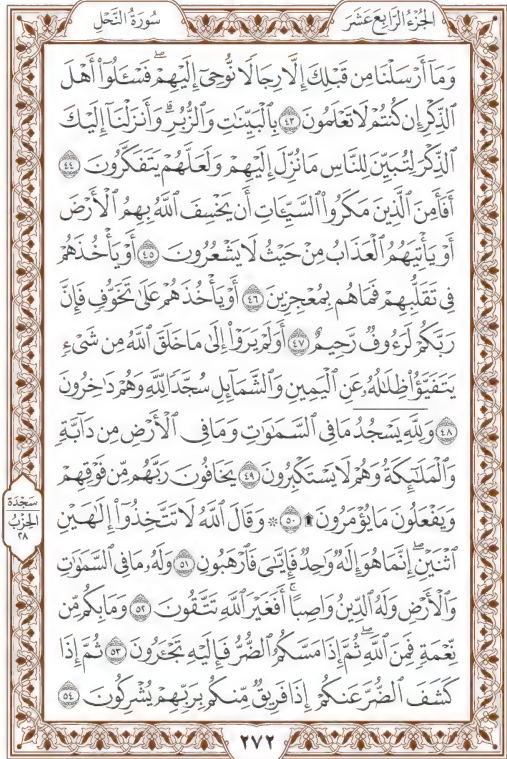 الجُزْءُ الرَّابِعَ عَشَرَ
سُورَةُ النَّحْلِ
وَمَآ أَرْسَلْنَا مِن قَبْلِكَ إِلَّا رِجَالًا نُّوحِىٓ إِلَيْهِمْۖ فَسْـَٔلُوٓا۟ أَهْلَ
ٱلذِّكْرِ إِن كُنتُمْ لَا تَعْلَمُونَ ٤٣ بِٱلْبَيِّنَٰتِ وَٱلزُّبُرِۗ وَأَنزَلْنَآ إِلَيْكَ
ٱلذِّكْرَ لِتُبَيِّنَ لِلنَّاسِ مَا نُزِّلَ إِلَيْهِمْ وَلَعَلَّهُمْ يَتَفَكَّرُونَ ٤٤
أَفَأَمِنَ ٱلَّذِينَ مَكَرُوا۟ ٱلسَّيِّـَٔاتِ أَن يَخْسِفَ ٱللَّهُ بِهِمُ ٱلْأَرْضَ
أَوْ يَأْتِيَهُمُ ٱلْعَذَابُ مِنْ حَيْثُ لَا يَشْعُرُونَ ٤٥ أَوْ يَأْخُذَهُمْ
فِى تَقَلُّبِهِمْ فَمَا هُم بِمُعْجِزِينَ ٤٦ أَوْ يَأْخُذَهُمْ عَلَىٰ تَخَوُّفٍ فَإِنَّ
رَبَّكُمْ لَرَءُوفٌ رَّحِيمٌ ٤٧ أَوَلَمْ يَرَوْا۟ إِلَىٰ مَا خَلَقَ ٱللَّهُ مِن شَىْءٍ
يَتَفَيَّؤُا۟ ظِلَٰلُهُۥ عَنِ ٱلْيَمِينِ وَٱلشَّمَآئِلِ سُجَّدًا لِّلَّهِ وَهُمْ دَٰخِرُونَ
٤٨ وَلِلَّهِ يَسْجُدُ مَا فِى ٱلسَّمَٰوَٰتِ وَمَا فِى ٱلْأَرْضِ مِن دَآبَّةٍ
وَٱلْمَلَٰٓئِكَةُ وَهُمْ لَا يَسْتَكْبِرُونَ ٤٩ يَخَافُونَ رَبَّهُم مِّن فَوْقِهِمْ
وَيَفْعَلُونَ مَا يُؤْمَرُونَ ۩ ٥٠ ۞ وَقَالَ ٱللَّهُ لَا تَتَّخِذُوٓا۟ إِلَٰهَيْنِ
ٱثْنَيْنِۖ إِنَّمَا هُوَ إِلَٰهٌ وَٰحِدٌ فَإِيَّٰىَ فَٱرْهَبُونِ ٥١ وَلَهُۥ مَا فِى ٱلسَّمَٰوَٰتِ
وَٱلْأَرْضِ وَلَهُ ٱلدِّينُ وَاصِبًاۚ أَفَغَيْرَ ٱللَّهِ تَتَّقُونَ ٥٢ وَمَا بِكُم مِّن
نِّعْمَةٍ فَمِنَ ٱللَّهِۖ ثُمَّ إِذَا مَسَّكُمُ ٱلضُّرُّ فَإِلَيْهِ تَجْـَٔرُونَ ٥٣ ثُمَّ إِذَا
كَشَفَ ٱلضُّرَّ عَنكُمْ إِذَا فَرِيقٌ مِّنكُم بِرَبِّهِمْ يُشْرِكُونَ ٥٤
سَجْدَة
الحِزْبُ
٢٨
٢٧٢